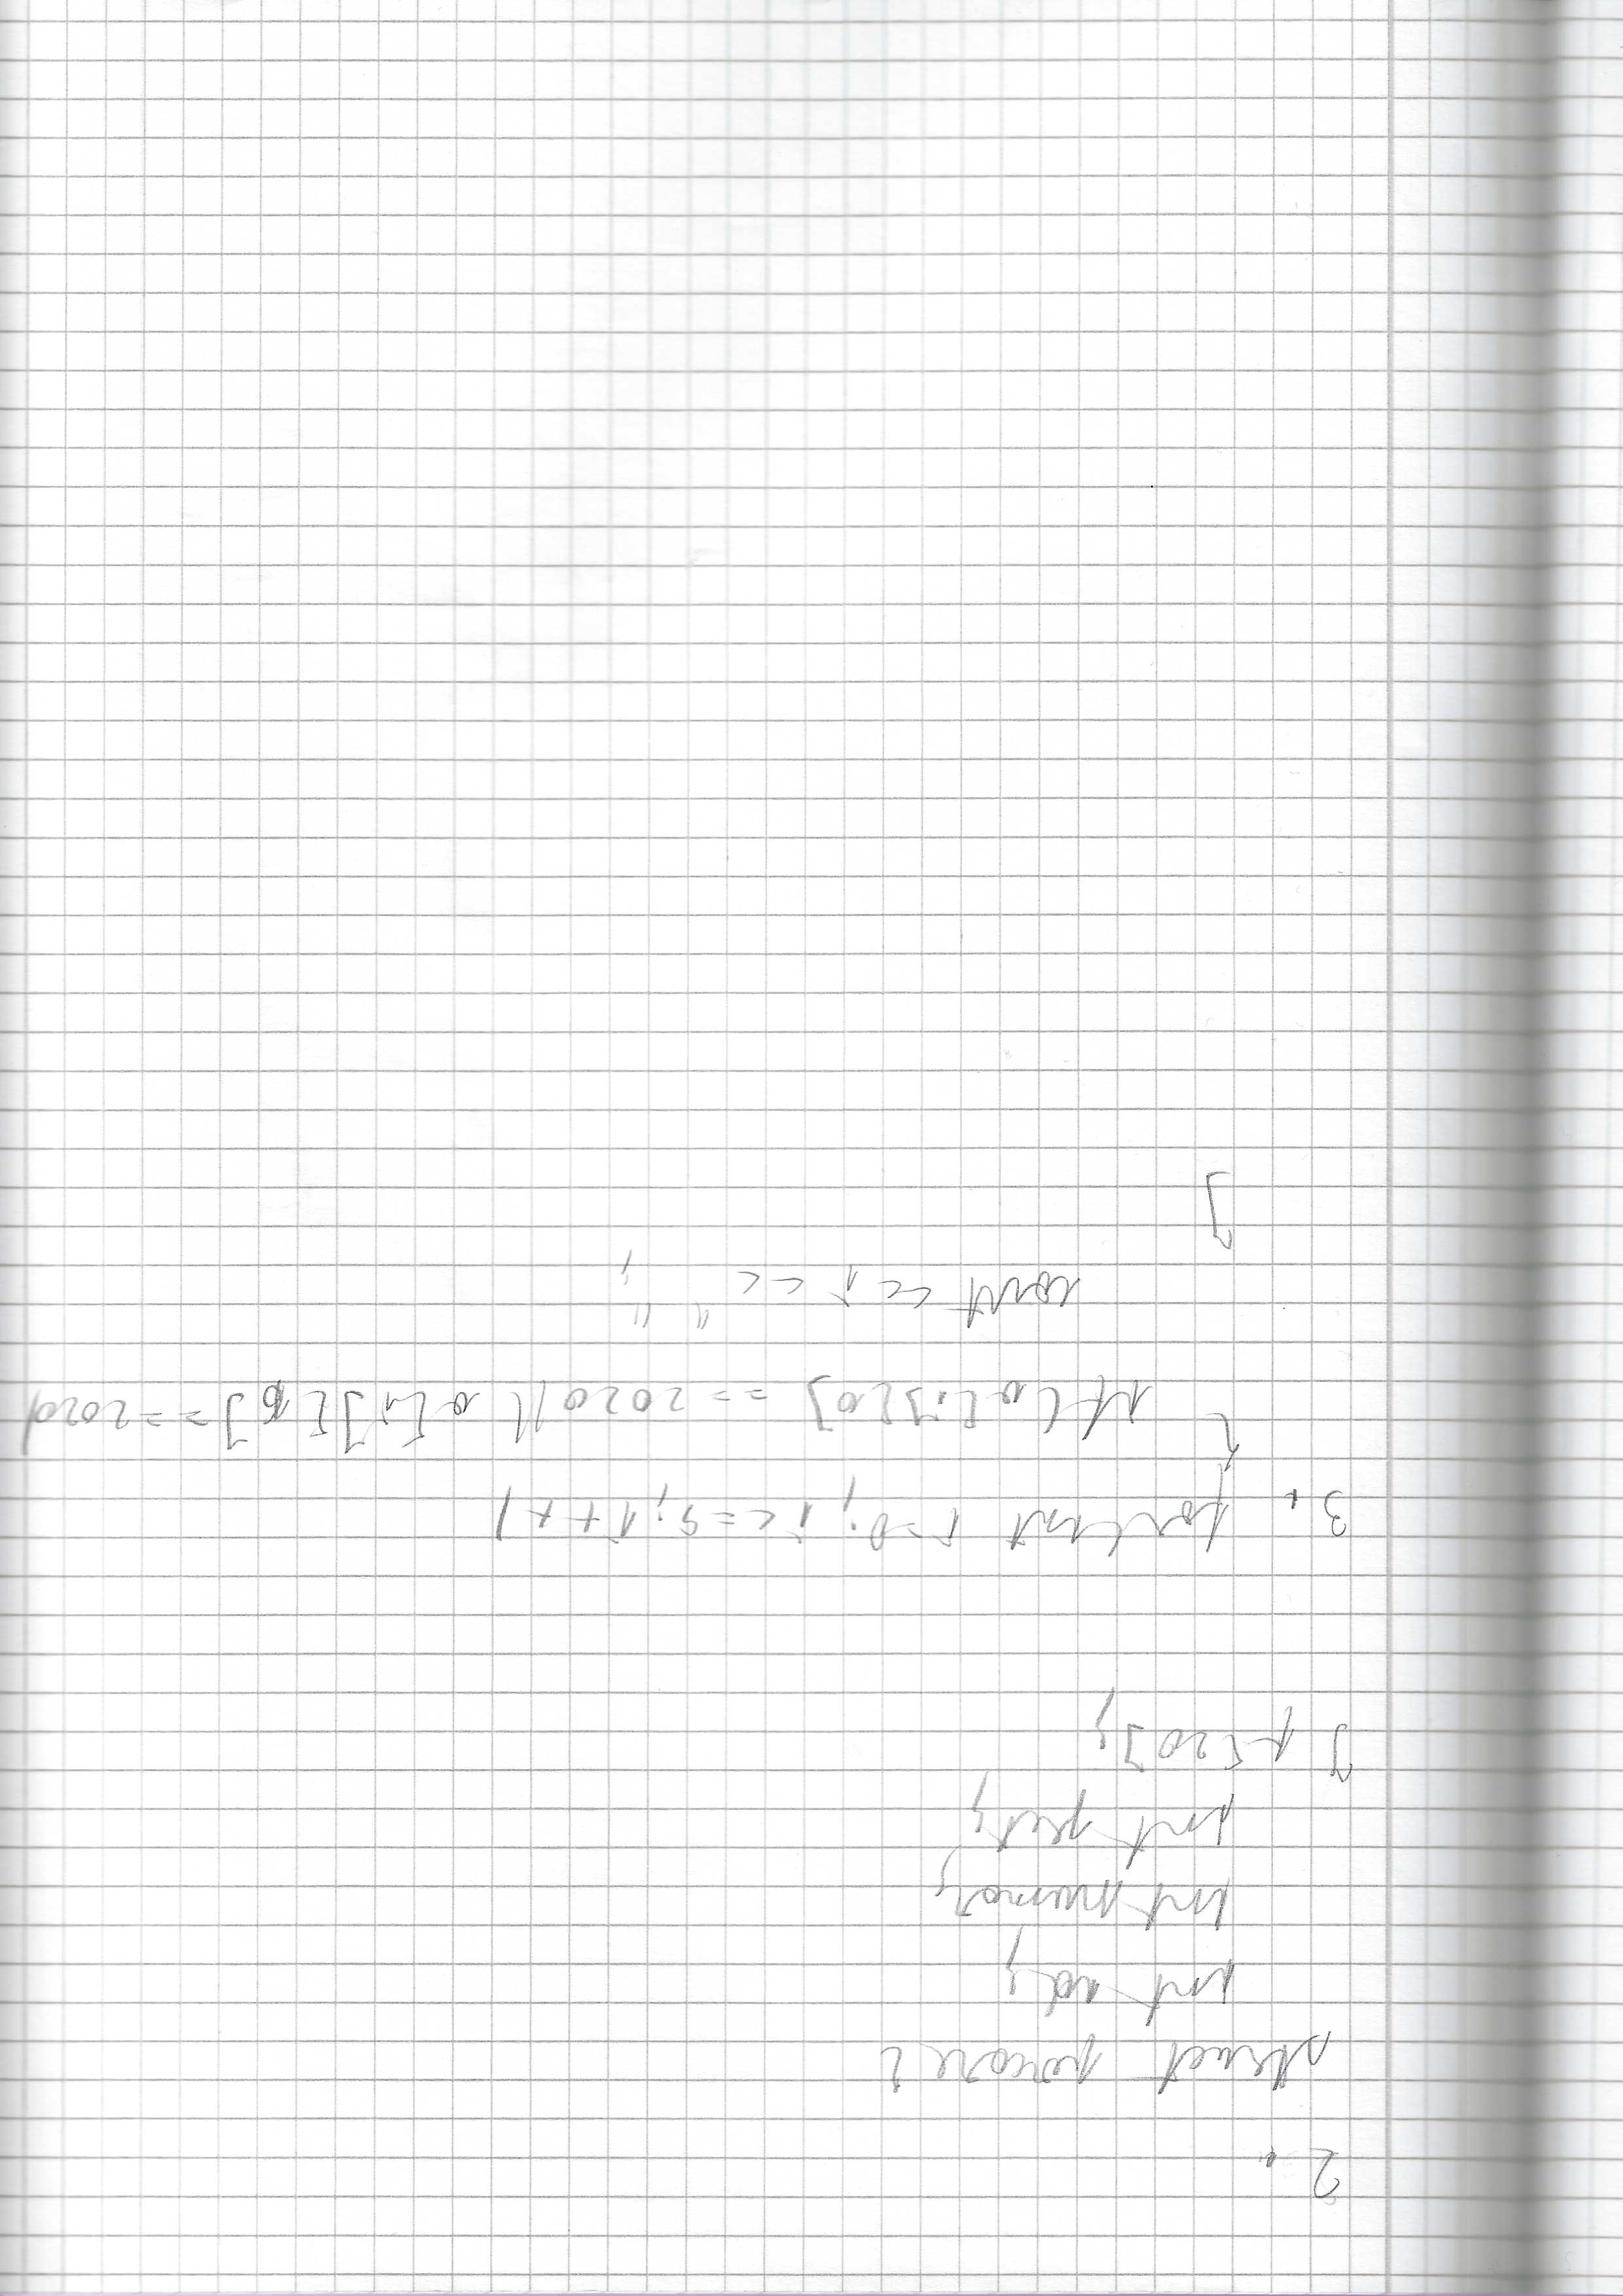 2.
struct parcare {
int id;
int numar;
int pret;
} p[20];
3. for(int i=0; i<=5; i++)
{
if(a[i][0] == 2020 || a[i][6] == 2020)
cout << i << " ";
}